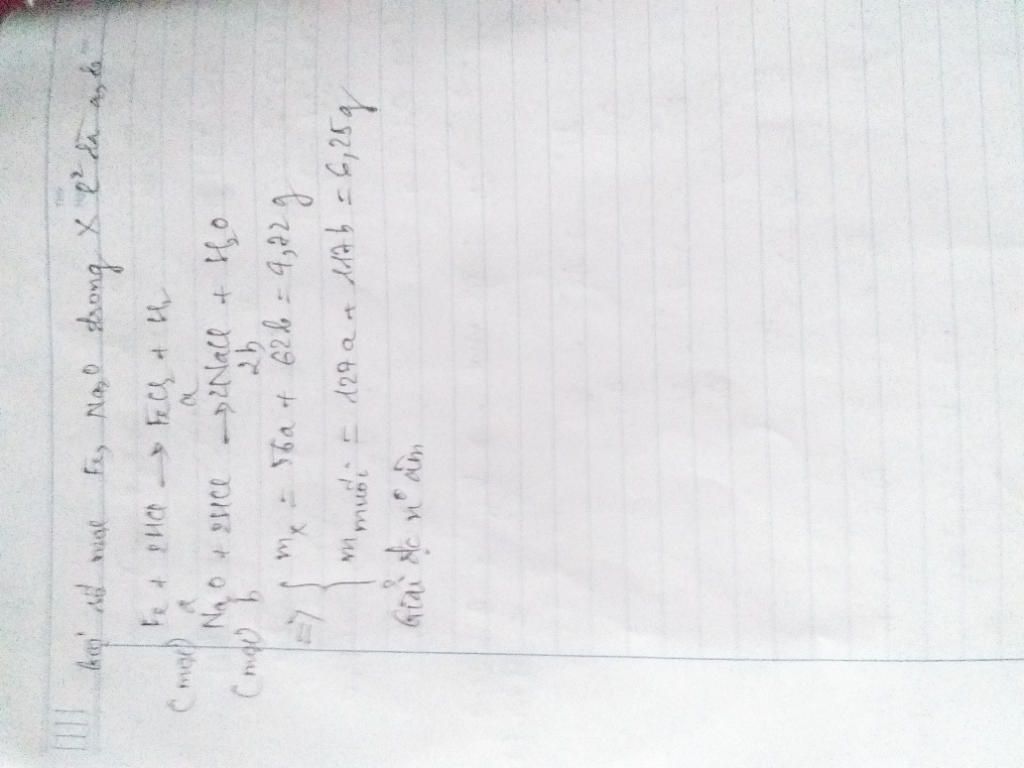 Gọi số mol Fe, Na₂O trong X l² là a, b
Fe + 2HCl → FeCl₂ + H₂
(mol) a a
Na₂O + 2HCl → 2NaCl + H₂O
(mol) b 2b
=> { mₓ = 56a + 62b = 4,72g
m muối = 127a + 117b = 6,25g
Giải đc n⁰ âm